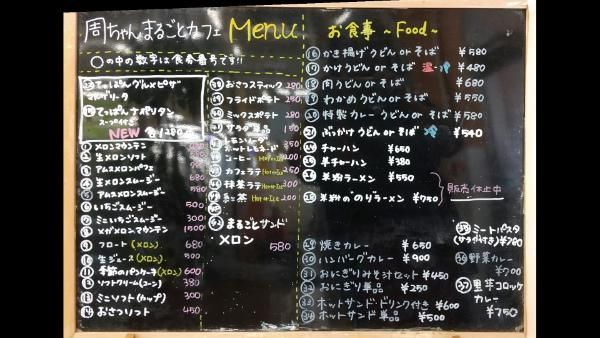 周ちゃんまるごとカフェ Menu
○の中の数字は食券番号です!!
てっぱんグルメピザ
マルゲリータ
てっぱんナポリタン
スープ付き
NEW
① メロンマウンテン
② 生メロンソフト
③ アムスメロンパフェ
④ 生メロンスムージー 680
⑤ アムスメロンスムージー 580
⑥ いちごスムージー 500
⑦ ミニいちごスムージー 300
⑧ メガメロンマウンテン 1500
⑨ フロート(メロン) 680
⑩ 生ジュース(メロン) 500
⑪ 季節のパンケーキ(メロン) 600
⑫ ソフトクリーム(コーン) 380
⑬ ミニソフト(カップ) 300
⑭ おさつソフト 450
おさつスティック 280
フライドポテト 250
ミックスポテト 280
サラダ単品 150
レモンソーダ
ホットレモネード 350
コーヒー Hot or Ice
カフェラテ Hot or Ice
抹茶ラテ Hot or Ice
紅茶 Hot or Ice
まるごとサンド
メロン 580
お食事 ~Food~
⑯ かき揚げうどん or そば ¥580
⑰ かけうどん or そば 温・冷 ¥480
⑱ 肉うどん or そば ¥680
⑲ わかめうどん or そば ¥550
⑳ 特製カレーうどん or そば ¥580
㉑ ぶっかけうどん or そば 冷 ¥540
チャーハン ¥650
半チャーハン ¥380
ラーメン ¥550
のりラーメン ¥750
販売休止中
焼きカレー ¥650
㉚ ハンバーグカレー ¥900
㉛ おにぎりみそ汁セット ¥450
㉜ おにぎり単品 ¥250
㉝ ホットサンド・ドリンク付き ¥600
㉞ ホットサンド単品 ¥500
㉟ ミートパスタ
(サラダ付き) ¥780
㊱ 野菜カレー
¥700
㊲ 里芋コロッケ
カレー
¥750